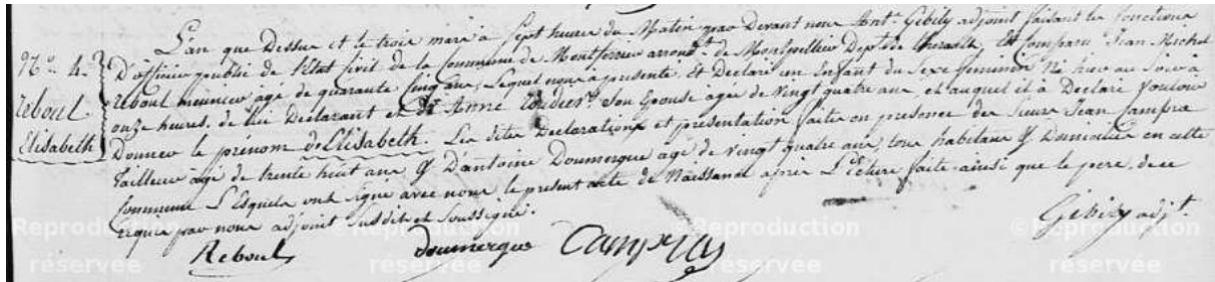 N.º 4.
reboul
Elisabeth
L'an que Dessus et le trois mars à Sept heures du Matin par Devant nous Ant.e Gibily adjoint faisant les fonctions
D'officier public de l'Etat Civil de la Commune de Montferrier arrond.t de Montpellier Dep.t de Lherault, Est Comparu Jean Michel
reboul meunier âgé de quarante Cinq ans, Lequel nous a présenté Et Déclaré un Enfant du Sexe feminin Né hier au Soir à
onze heures, de lui Déclarant et Anne Son Epouse agée de vingt quatre ans, et auquel il à Déclaré vouloir
Donner le prénom d'Elisabeth. Les dites Declarations et presentation faite en presence des Sieurs Jean Campra
Tailleur âgé de trente huit ans & D'antoine Doumergue agé de vingt quatre ans, tous habitans & Domiciliés en cette
Commune L'Esquels ont signé avec nous le présent acte de Naissance après Lecture faite ainsi que le pere, de ce
requis par nous adjoint susdit et soussigné.
Reboul
Doumergue
Campra
Gibily adj.t
©Reproduction
réservée
©Reproduction
réservée
©Reproduction
réservée